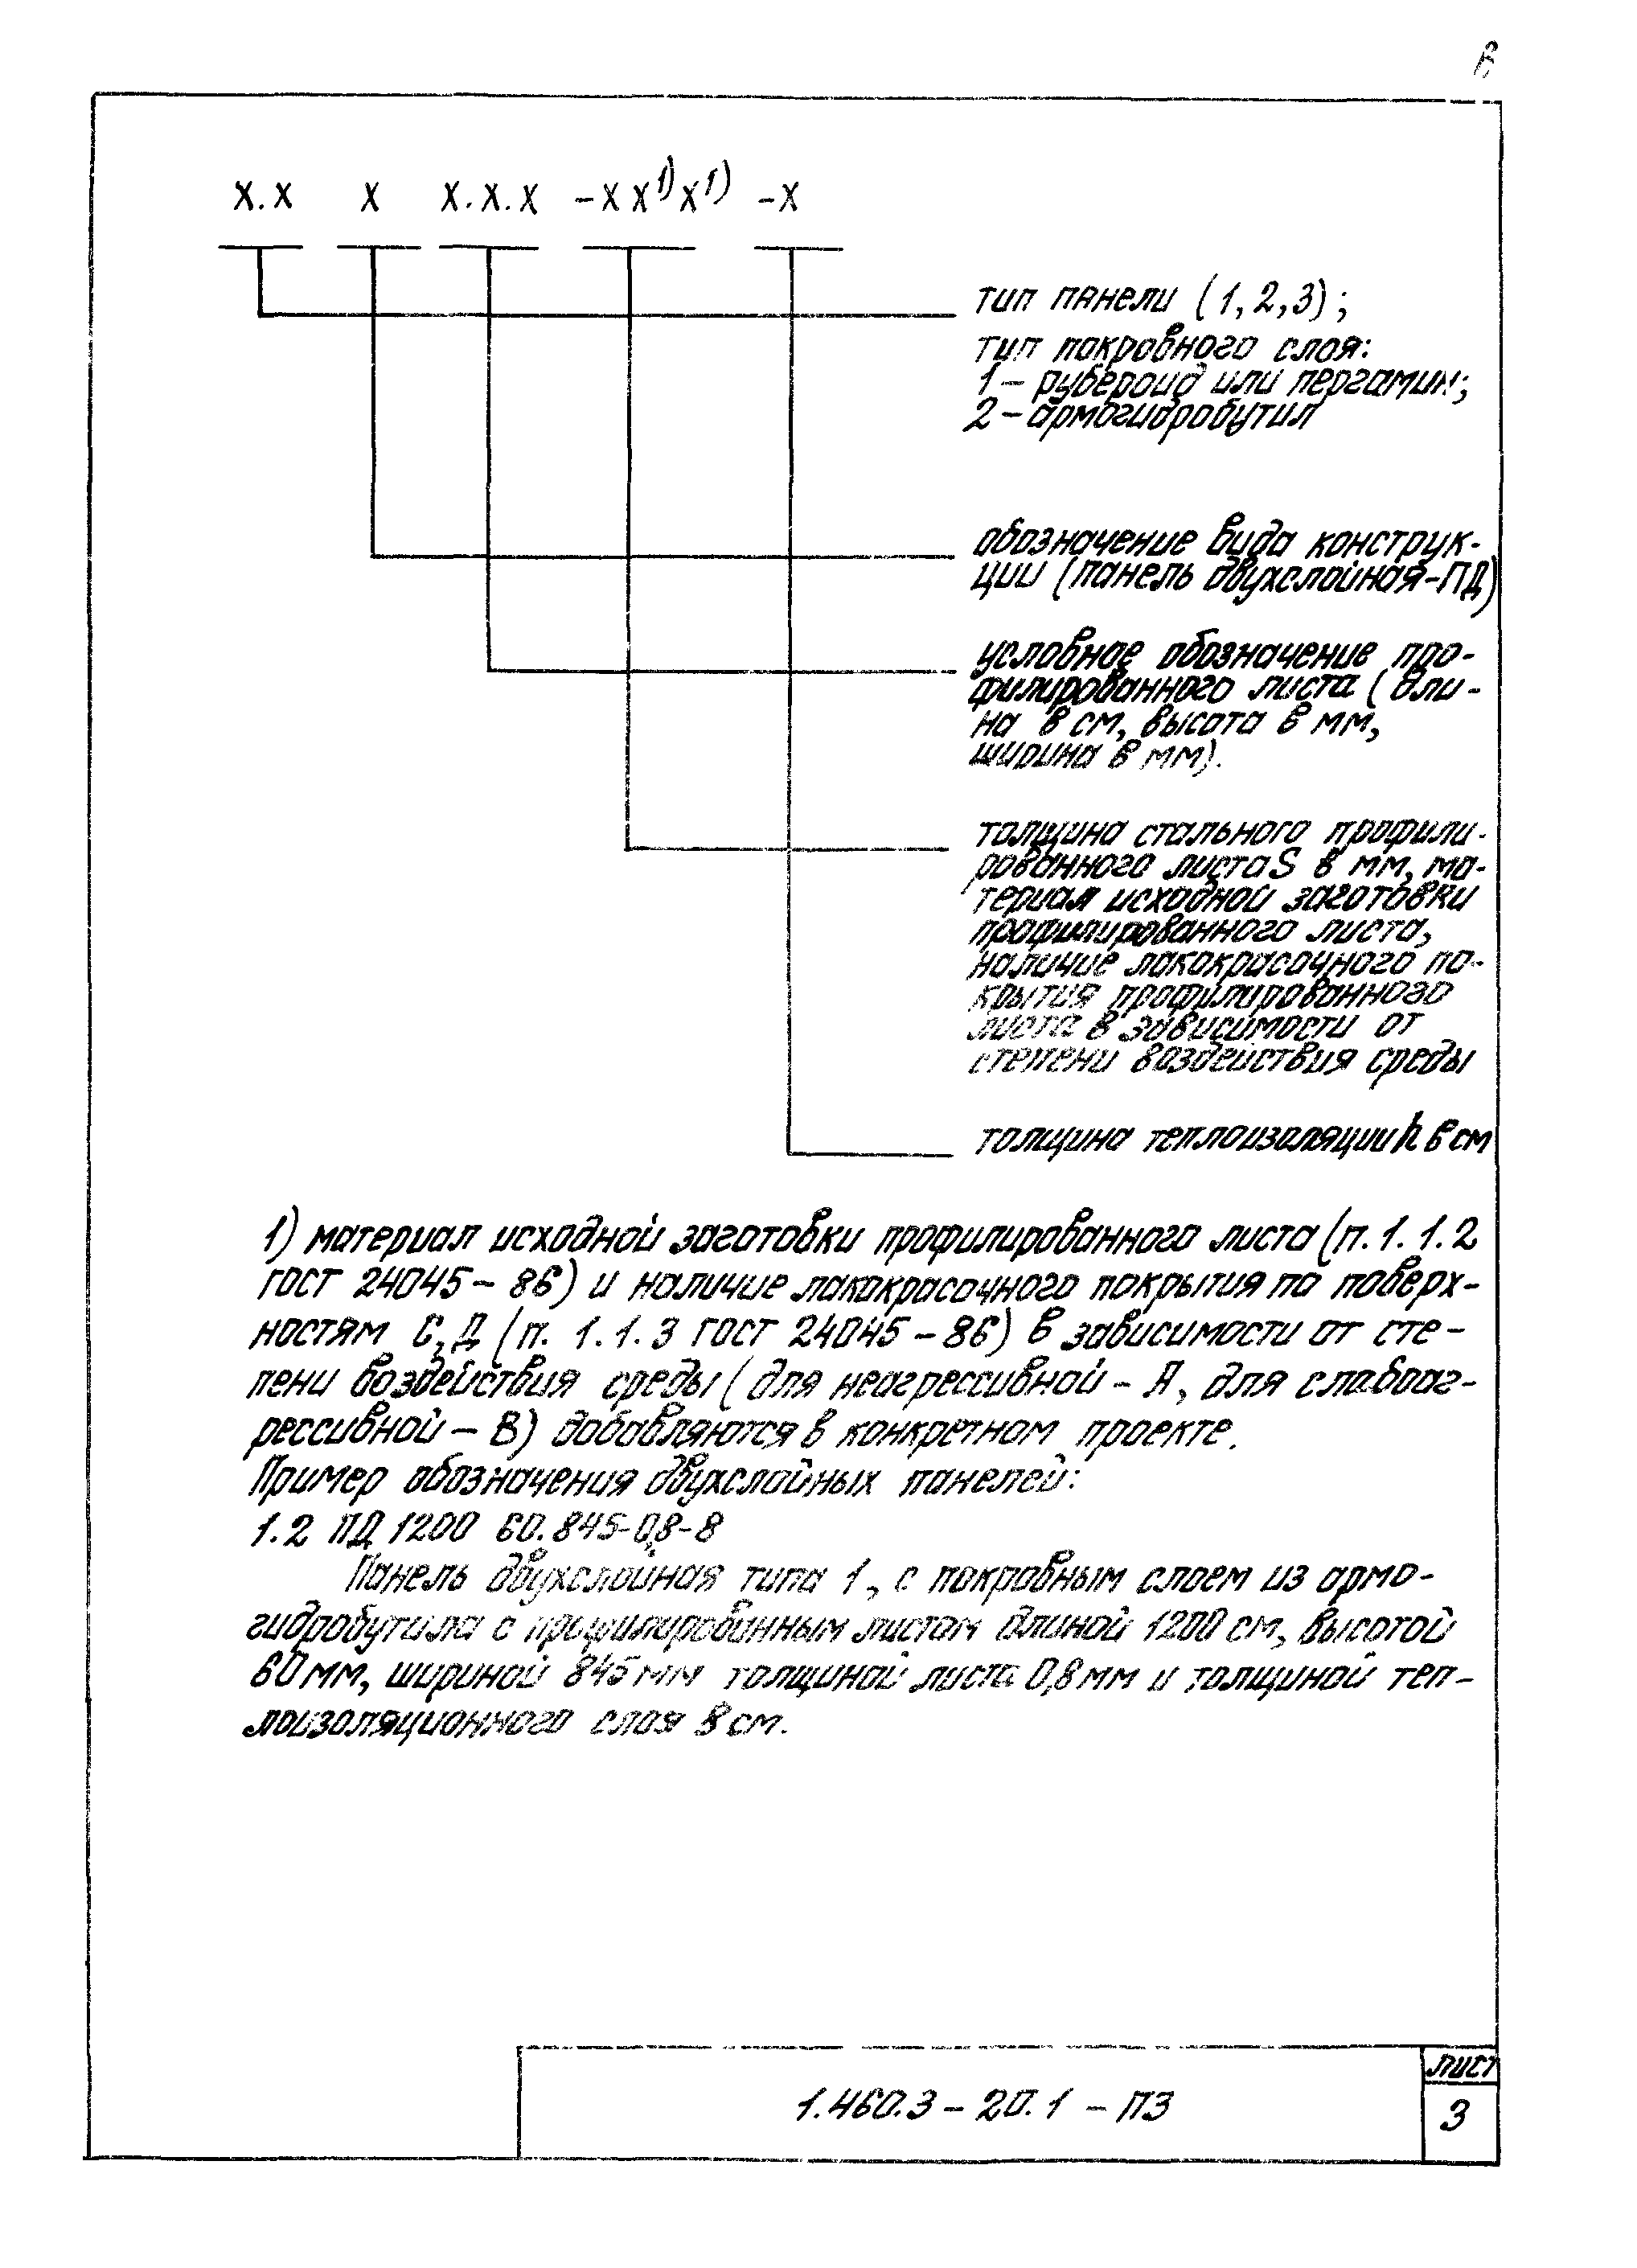 6
X.X X X.X.X -X X¹⁾X¹⁾ -X
тип панели (1,2,3);
тип покровного слоя:
1 – рубероид или пергамин;
2 – армогидробутил
обозначение вида конструк-
ции (панель двухслойная-ПД)
условное обозначение про-
филированного листа (дли-
на в см, высота в мм,
ширина в мм).
толщина стального профили-
рованного листа S в мм, ма-
териал исходной заготовки
профилированного листа,
наличие лакокрасочного по-
крытия профилированного
листа в зависимости от
степени воздействия среды
толщина теплоизоляции h в см
1) материал исходной заготовки профилированного листа (п. 1.1.2
ГОСТ 24045-86) и наличие лакокрасочного покрытия по поверх-
ностям С,Д (п. 1.1.3 ГОСТ 24045-86) в зависимости от сте-
пени воздействия среды (для неагрессивной – А, для слабоаг-
рессивной – В) добавляются в конкретном проекте.
Пример обозначения двухслойных панелей:
1.2 ПД 1200 60.845-0,8-8
Панель двухслойная типа 1, с покровным слоем из армо-
гидробутила с профилированным листом длиной 1200 см, высотой
60 мм, шириной 845 мм толщиной листа 0,8 мм и толщиной теп-
лоизоляционного слоя 8 см.
1.460.3 – 20.1 – ПЗ
лист
3